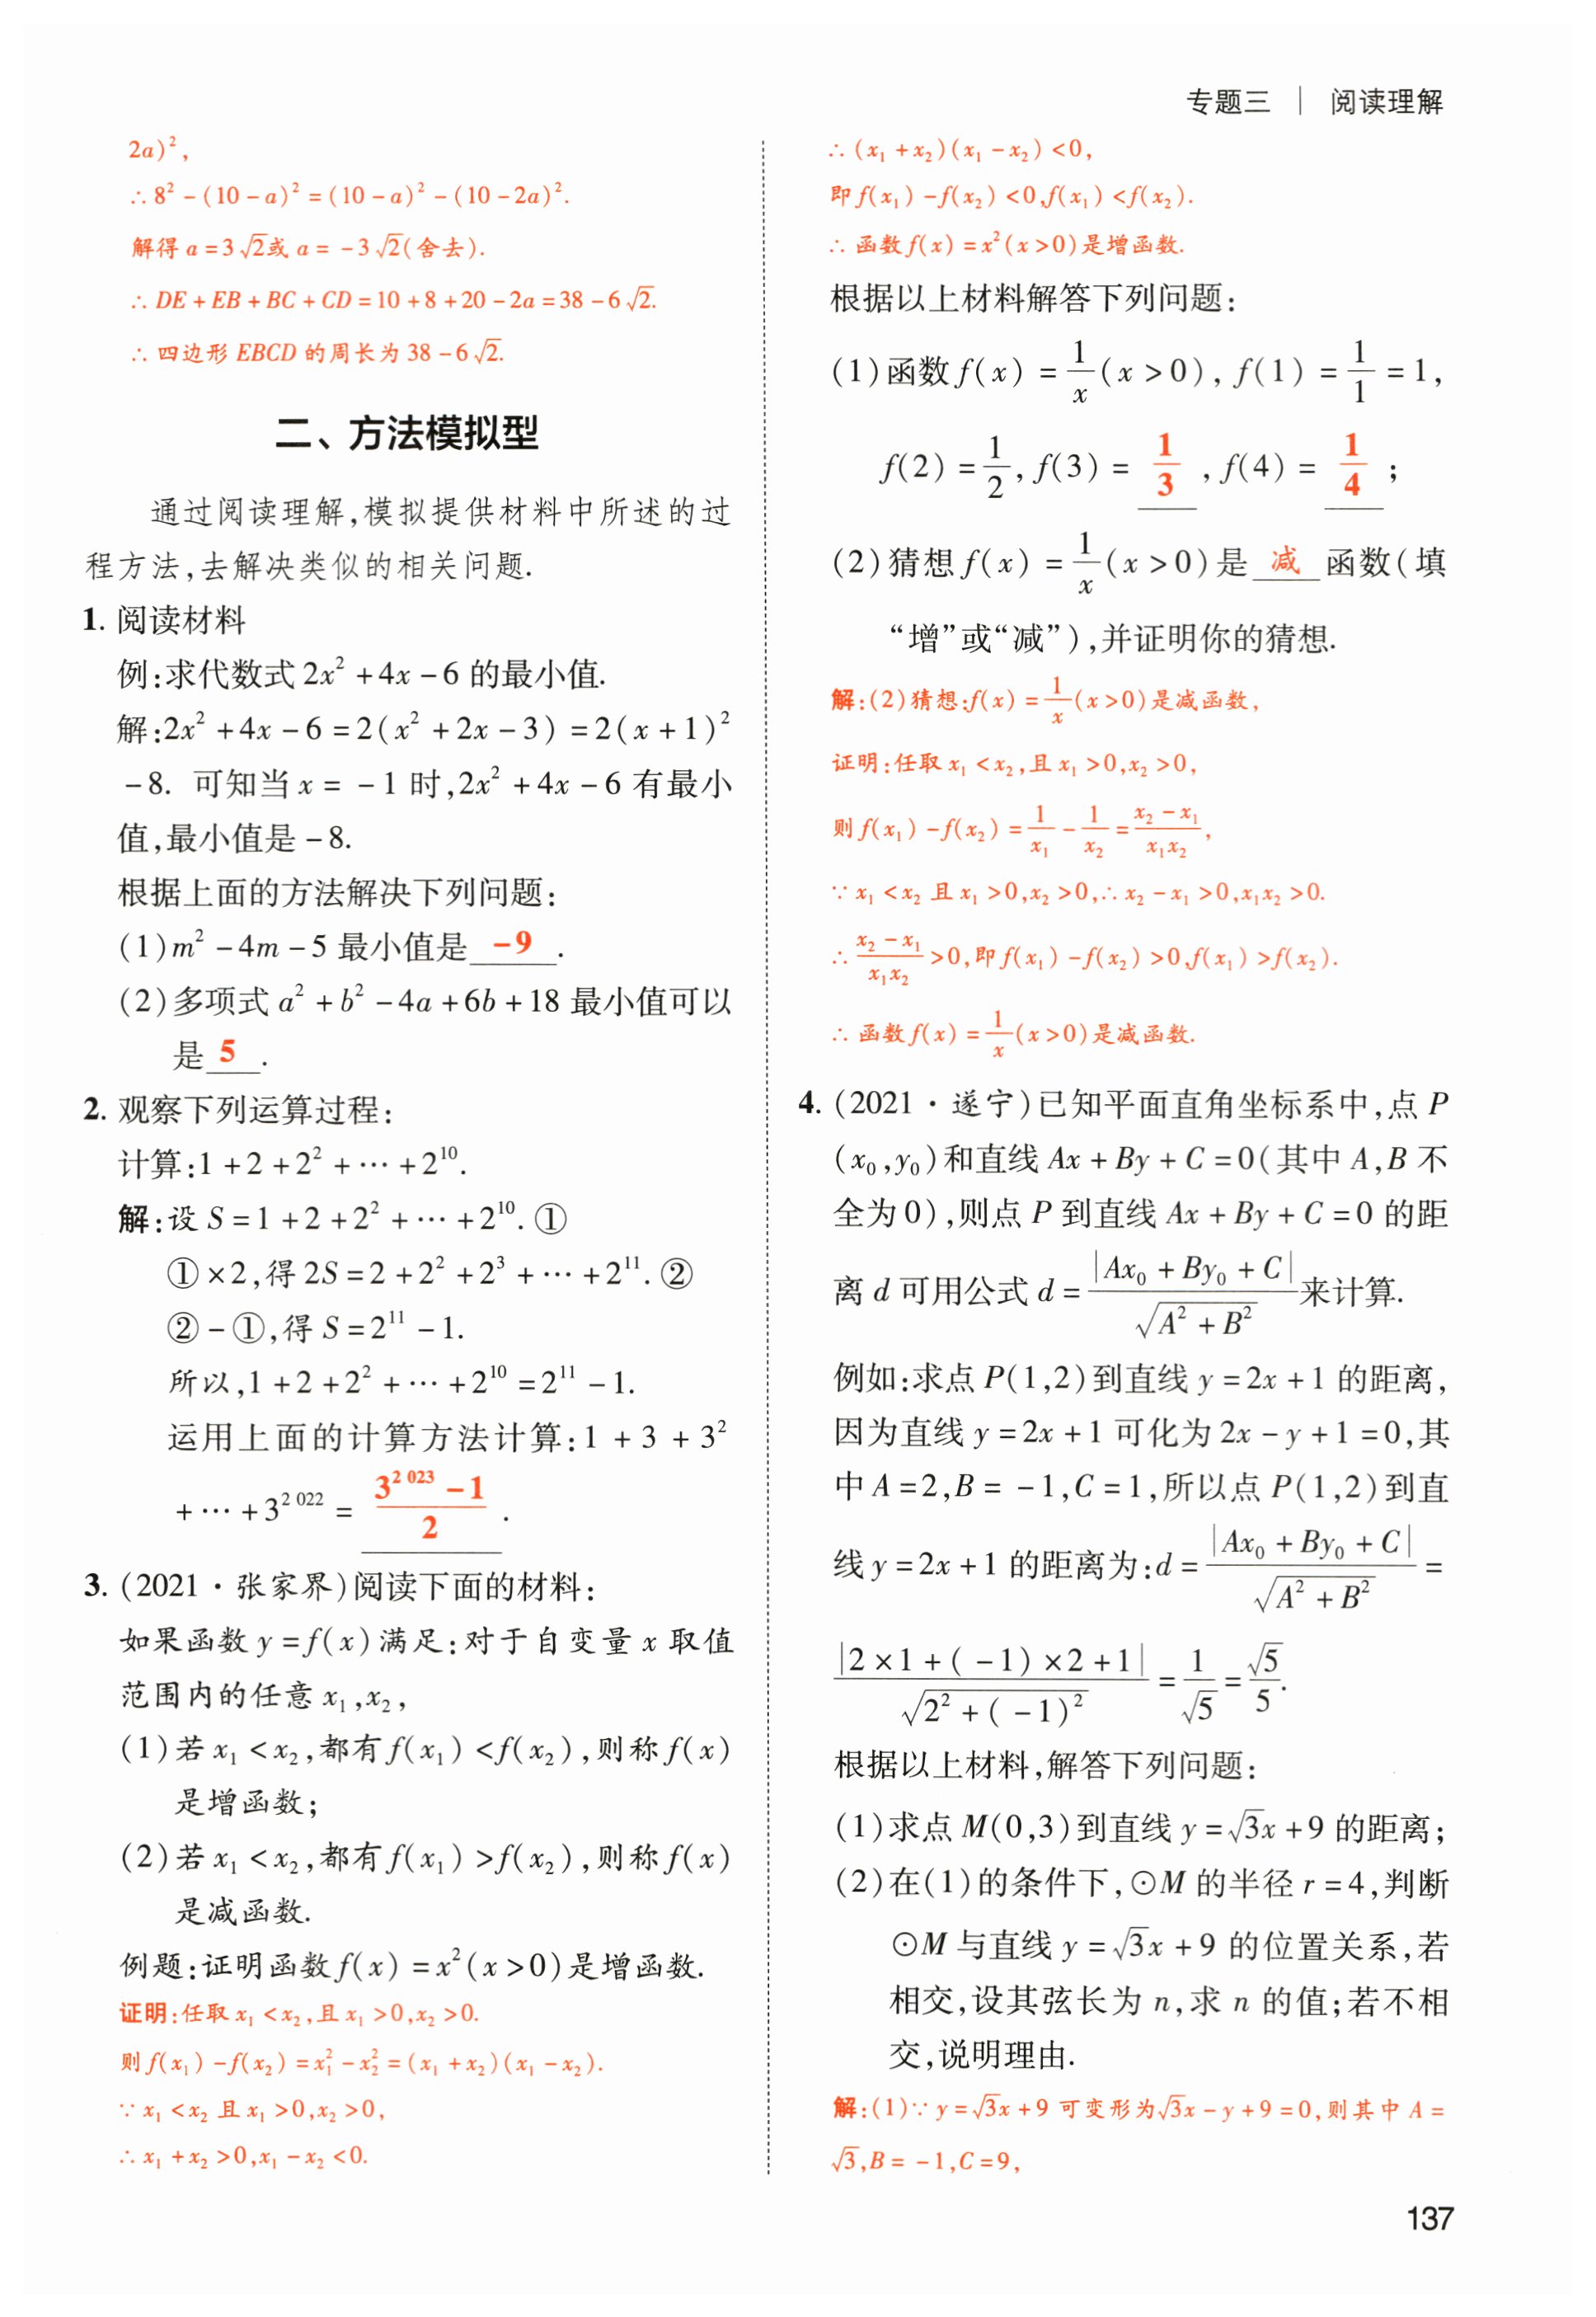 专题三 | 阅读理解
2a)²,
∴ 8² - (10 - a)² = (10 - a)² - (10 - 2a)².
解得 a = 3√2或 a = -3√2(舍去).
∴ DE + EB + BC + CD = 10 + 8 + 20 - 2a = 38 - 6√2.
∴ 四边形 EBCD 的周长为 38 - 6√2.
二、方法模拟型
通过阅读理解,模拟提供材料中所述的过
程方法,去解决类似的相关问题.
1. 阅读材料
例:求代数式 2x² + 4x - 6 的最小值.
解:2x² + 4x - 6 = 2(x² + 2x - 3) = 2(x + 1)²
-8. 可知当 x = -1 时,2x² + 4x - 6 有最小
值,最小值是 -8.
根据上面的方法解决下列问题:
(1)m² - 4m - 5 最小值是 -9 .
(2)多项式 a² + b² - 4a + 6b + 18 最小值可以
是 5 .
2. 观察下列运算过程:
计算:1 + 2 + 2² + ⋯ + 2¹⁰.
解:设 S = 1 + 2 + 2² + ⋯ + 2¹⁰. ①
① × 2,得 2S = 2 + 2² + 2³ + ⋯ + 2¹¹. ②
② - ①,得 S = 2¹¹ - 1.
所以,1 + 2 + 2² + ⋯ + 2¹⁰ = 2¹¹ - 1.
运用上面的计算方法计算:1 + 3 + 3²
+ ⋯ + 3^{2 022} = (3^{2 023} - 1)/2 .
3. (2021 · 张家界)阅读下面的材料:
如果函数 y = f(x)满足:对于自变量 x 取值
范围内的任意 x₁,x₂,
(1)若 x₁ < x₂,都有 f(x₁) < f(x₂),则称 f(x)
是增函数;
(2)若 x₁ < x₂,都有 f(x₁) > f(x₂),则称 f(x)
是减函数.
例题:证明函数 f(x) = x²(x > 0)是增函数.
证明:任取 x₁ < x₂,且 x₁ > 0,x₂ > 0.
则 f(x₁) - f(x₂) = x₁² - x₂² = (x₁ + x₂)(x₁ - x₂).
∵ x₁ < x₂ 且 x₁ > 0,x₂ > 0,
∴ x₁ + x₂ > 0,x₁ - x₂ < 0.
∴ (x₁ + x₂)(x₁ - x₂) < 0,
即 f(x₁) - f(x₂) < 0,f(x₁) < f(x₂).
∴ 函数 f(x) = x²(x > 0)是增函数.
根据以上材料解答下列问题:
(1)函数 f(x) = 1/x (x > 0), f(1) = 1/1 = 1,
f(2) = 1/2, f(3) = 1/3 , f(4) = 1/4 ;
(2)猜想 f(x) = 1/x (x > 0)是 减 函数(填
“增”或“减”),并证明你的猜想.
解:(2)猜想:f(x) = 1/x (x > 0)是减函数,
证明:任取 x₁ < x₂,且 x₁ > 0,x₂ > 0,
则 f(x₁) - f(x₂) = 1/x₁ - 1/x₂ = (x₂ - x₁)/(x₁x₂),
∵ x₁ < x₂ 且 x₁ > 0,x₂ > 0,∴ x₂ - x₁ > 0,x₁x₂ > 0.
∴ (x₂ - x₁)/(x₁x₂) > 0,即 f(x₁) - f(x₂) > 0,f(x₁) > f(x₂).
∴ 函数 f(x) = 1/x (x > 0)是减函数.
4. (2021 · 遂宁)已知平面直角坐标系中,点 P
(x₀,y₀)和直线 Ax + By + C = 0(其中 A,B 不
全为 0),则点 P 到直线 Ax + By + C = 0 的距
离 d 可用公式 d = |Ax₀ + By₀ + C|/√(A² + B²) 来计算.
例如:求点 P(1,2)到直线 y = 2x + 1 的距离,
因为直线 y = 2x + 1 可化为 2x - y + 1 = 0,其
中 A = 2,B = -1,C = 1,所以点 P(1,2)到直
线 y = 2x + 1 的距离为:d = |Ax₀ + By₀ + C|/√(A² + B²) =
|2 × 1 + (-1) × 2 + 1|/√(2² + (-1)²) = 1/√5 = √5/5.
根据以上材料,解答下列问题:
(1)求点 M(0,3)到直线 y = √3x + 9 的距离;
(2)在(1)的条件下,⊙M 的半径 r = 4,判断
⊙M 与直线 y = √3x + 9 的位置关系,若
相交,设其弦长为 n,求 n 的值;若不相
交,说明理由.
解:(1)∵ y = √3x + 9 可变形为√3x - y + 9 = 0,则其中 A =
√3,B = -1,C = 9,
137